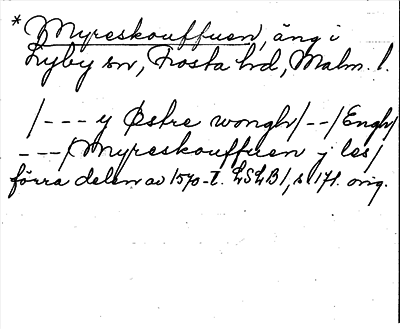 * Myreskouffuen, äng i
Lyby sn, Frosta hd, Malm. l.
/--- y Østre wongh/--/Engh/
---/Myreskouffuen j les/
förra delen av 1570-t. LSLB1, s 171. orig.